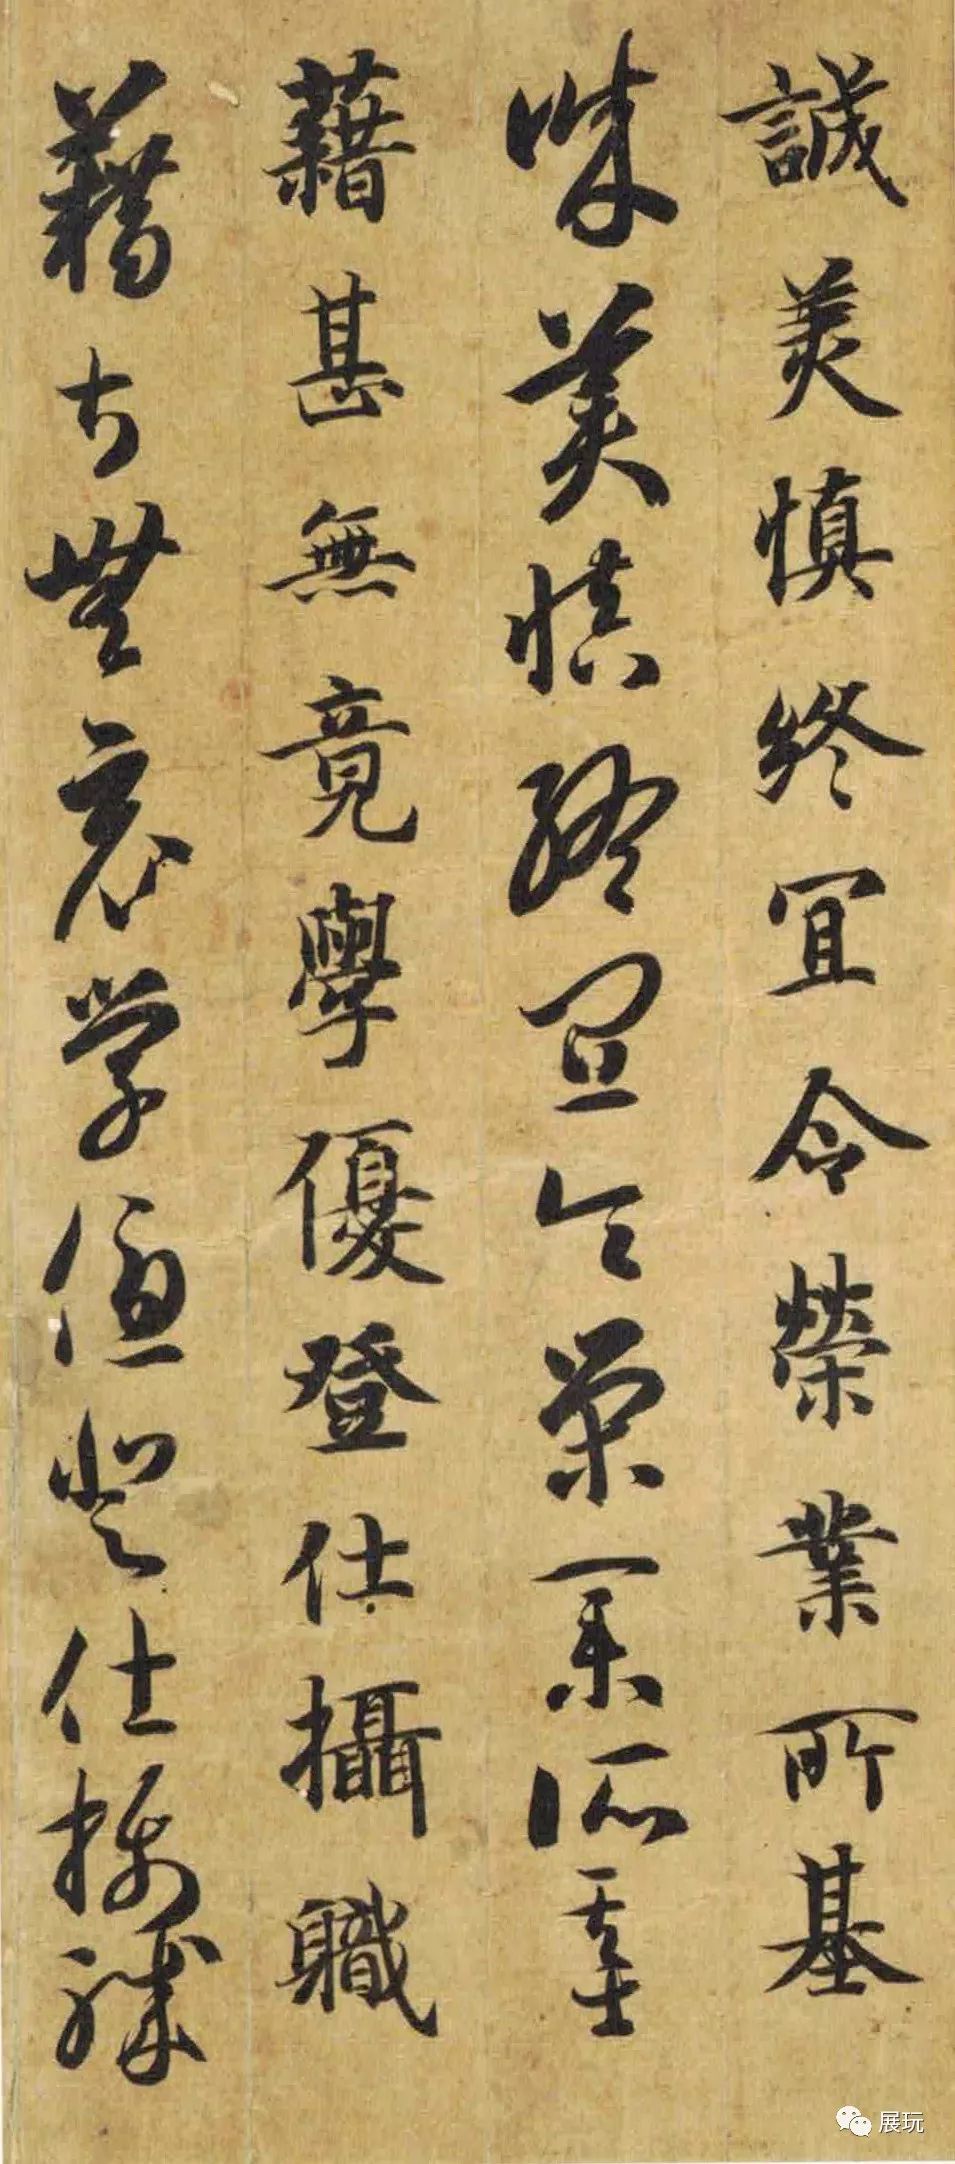 誠美慎終宜令榮業所基
誠美慎終宜令榮業所基
藉甚無竟學優登仕攝職
藉甚無竟學優登仕攝職
展玩